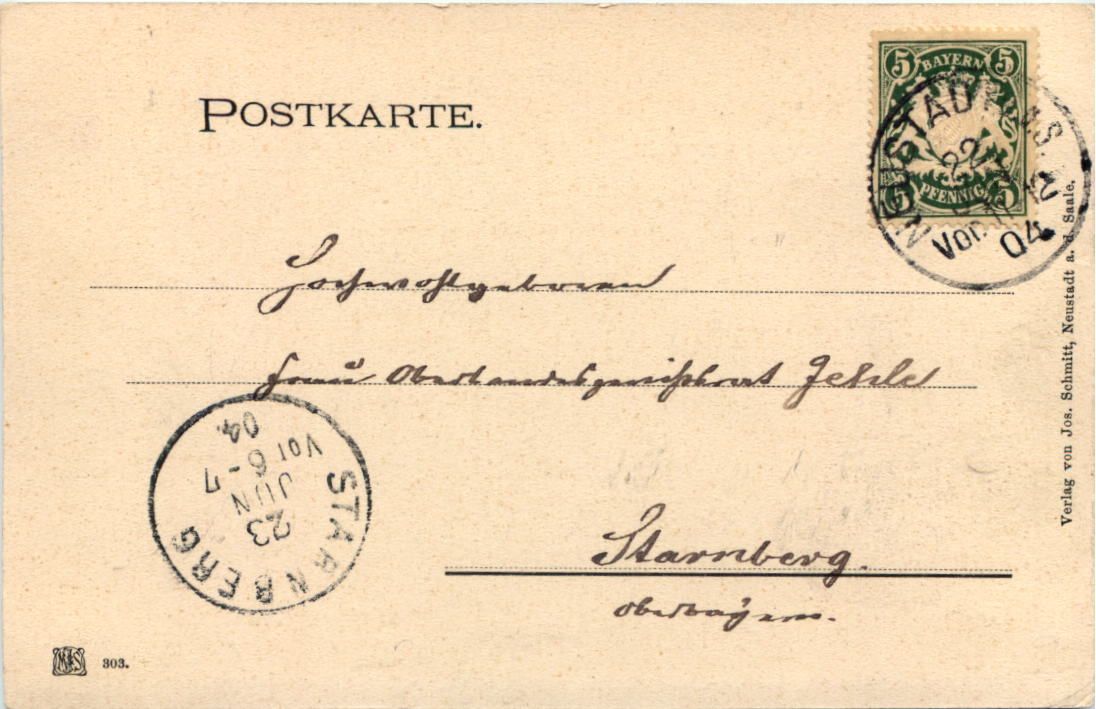 POSTKARTE.
5 BAYERN 5
5 PFENNIG 5
NEUSTADT A.S.
22
VOR. 11-12
04
Hochwohlgeboren
Frau Oberlandesgerichtsrat
Starnberg.
Oberbayern.
STARNBERG
23
JUN
Vor 6-7
04.
Verlag von Jos. Schmitt, Neustadt a. d. Saale.
303.